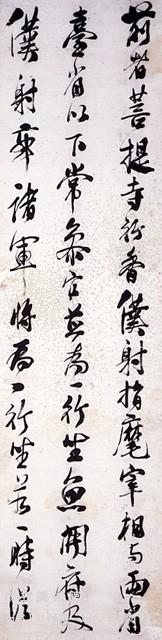 前者菩提寺行香僕射指麾宰相与兩省
臺省以下常叅官並為一行坐魚開府及
僕射率諸軍將為一行坐若一時從